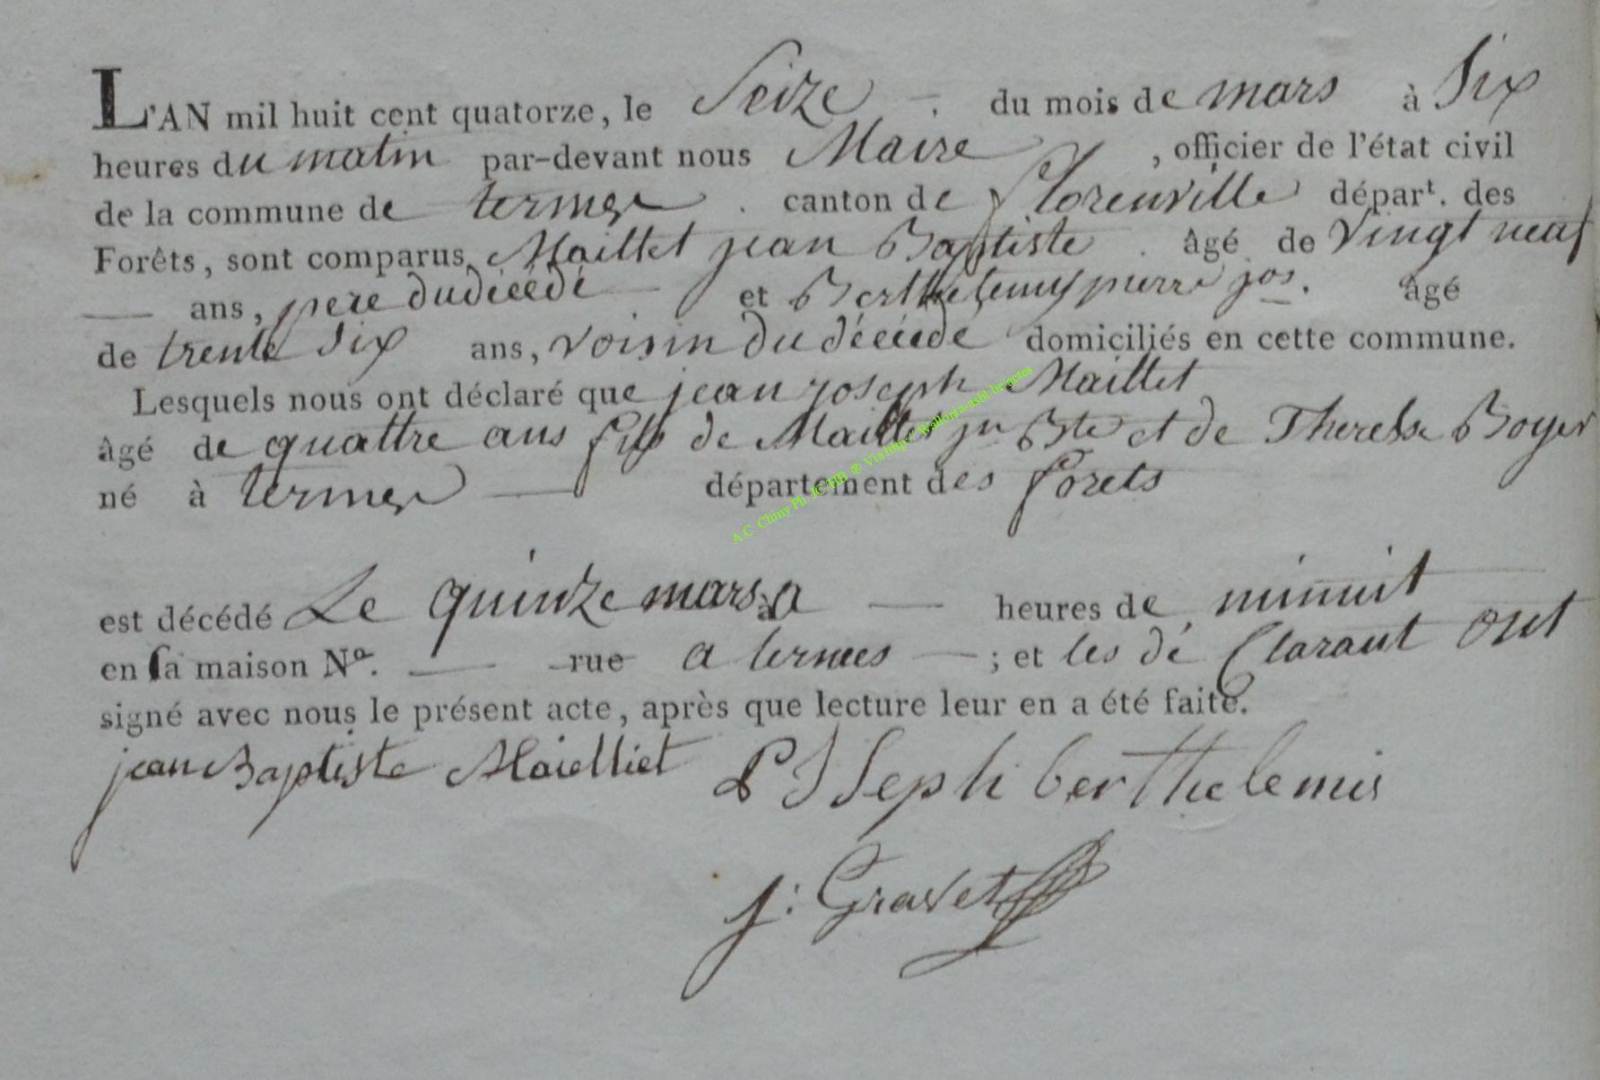 L'AN mil huit cent quatorze, le Seize du mois de mars à Six
heures du matin par-devant nous Maire , officier de l'état civil
de la commune de termes canton de florenville départ. des
Forêts, sont comparus Maillet jean Baptiste âgé de Vingt neuf
ans, pere du décédé et Berthelemy pierre jos. âgé
de trente Six ans, voisin du décédé domiciliés en cette commune.
Lesquels nous ont déclaré que jean joseph Maillet
âgé de quattre ans fils de Maillet jn Bte et de Therese Boyer
né à termes département des forets
est décédé Le quinze mars à heures de minuit
en sa maison No. rue a termes ; et les dé Clarant ont
signé avec nous le présent acte, après que lecture leur en a été faite.
jean Baptiste Maielliet P J Seph berthelemis
j: Gravet